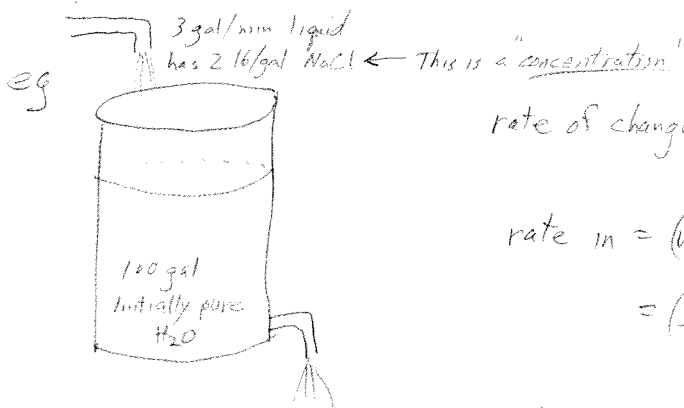 3 gal/min liquid
has 2 lb/gal NaCl ← This is a "concentration"
eg
rate of chang
rate in = (
= (
100 gal
Initially pure
H₂O